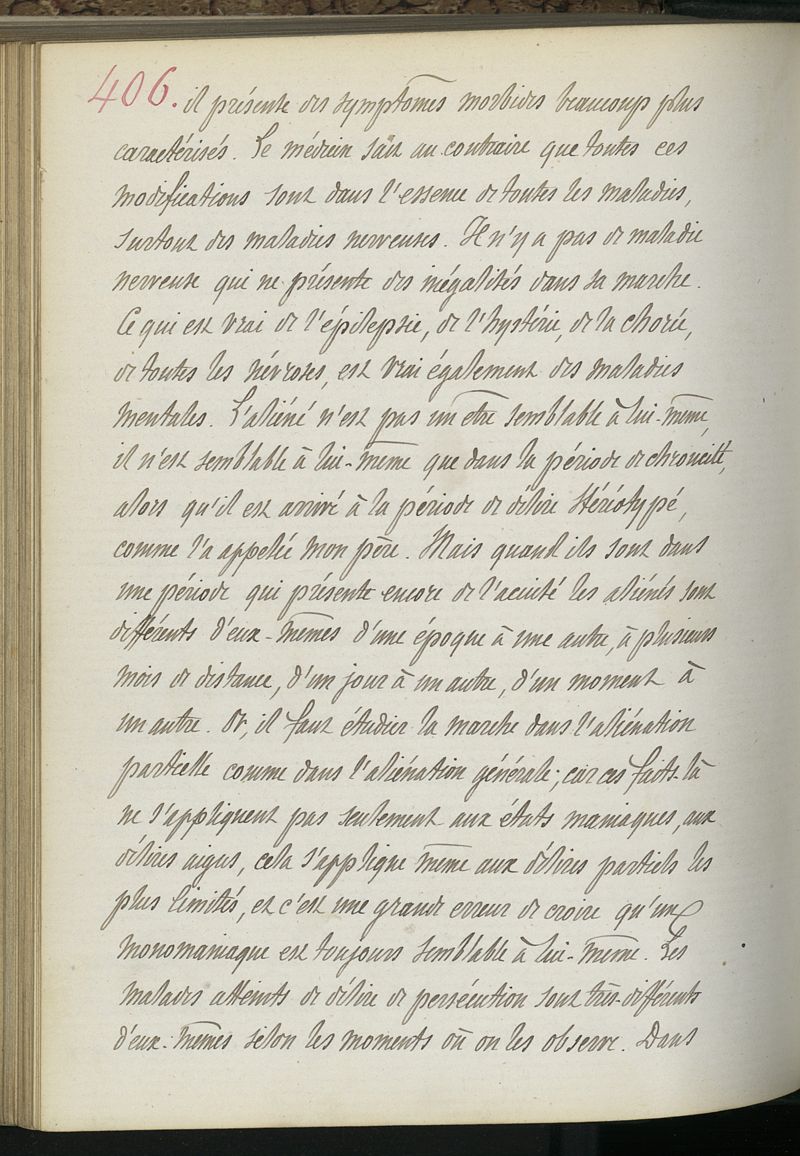 406. il présente des symptômes morbides beaucoup plus
caractérisés. Le médecin sait au contraire que toutes ces
modifications sont dans l'essence de toutes les maladies,
surtout des maladies nerveuses. Il n'y a pas de maladie
nerveuse qui ne présente des inégalités dans sa marche.
Ce qui est vrai de l'épilepsie, de l'hystérie, de la chorée,
de toutes les névroses, est vrai également des maladies
mentales. L'aliéné n'est pas un être semblable à lui-même,
il n'est semblable à lui-même que dans la période de chronicité,
alors qu'il est arrivé à la période de délire stéréotypé,
comme l'a appelée mon père. Mais quand ils sont dans
une période qui présente encore de l'acuité les aliénés sont
différents d'eux-mêmes d'une époque à une autre, à plusieurs
mois de distance, d'un jour à un autre, d'un moment à
un autre. Or, il faut étudier la marche dans l'aliénation
partielle comme dans l'aliénation générale; car ces faits-là
ne s'appliquent pas seulement aux états maniaques, aux
délires aigus, cela s'applique même aux délires partiels les
plus limités, et c'est une grande erreur de croire qu'un
monomaniaque est toujours semblable à lui-même. Les
malades atteints de délire de persécution sont très-différents
d'eux-mêmes selon les moments où on les observe. Dans